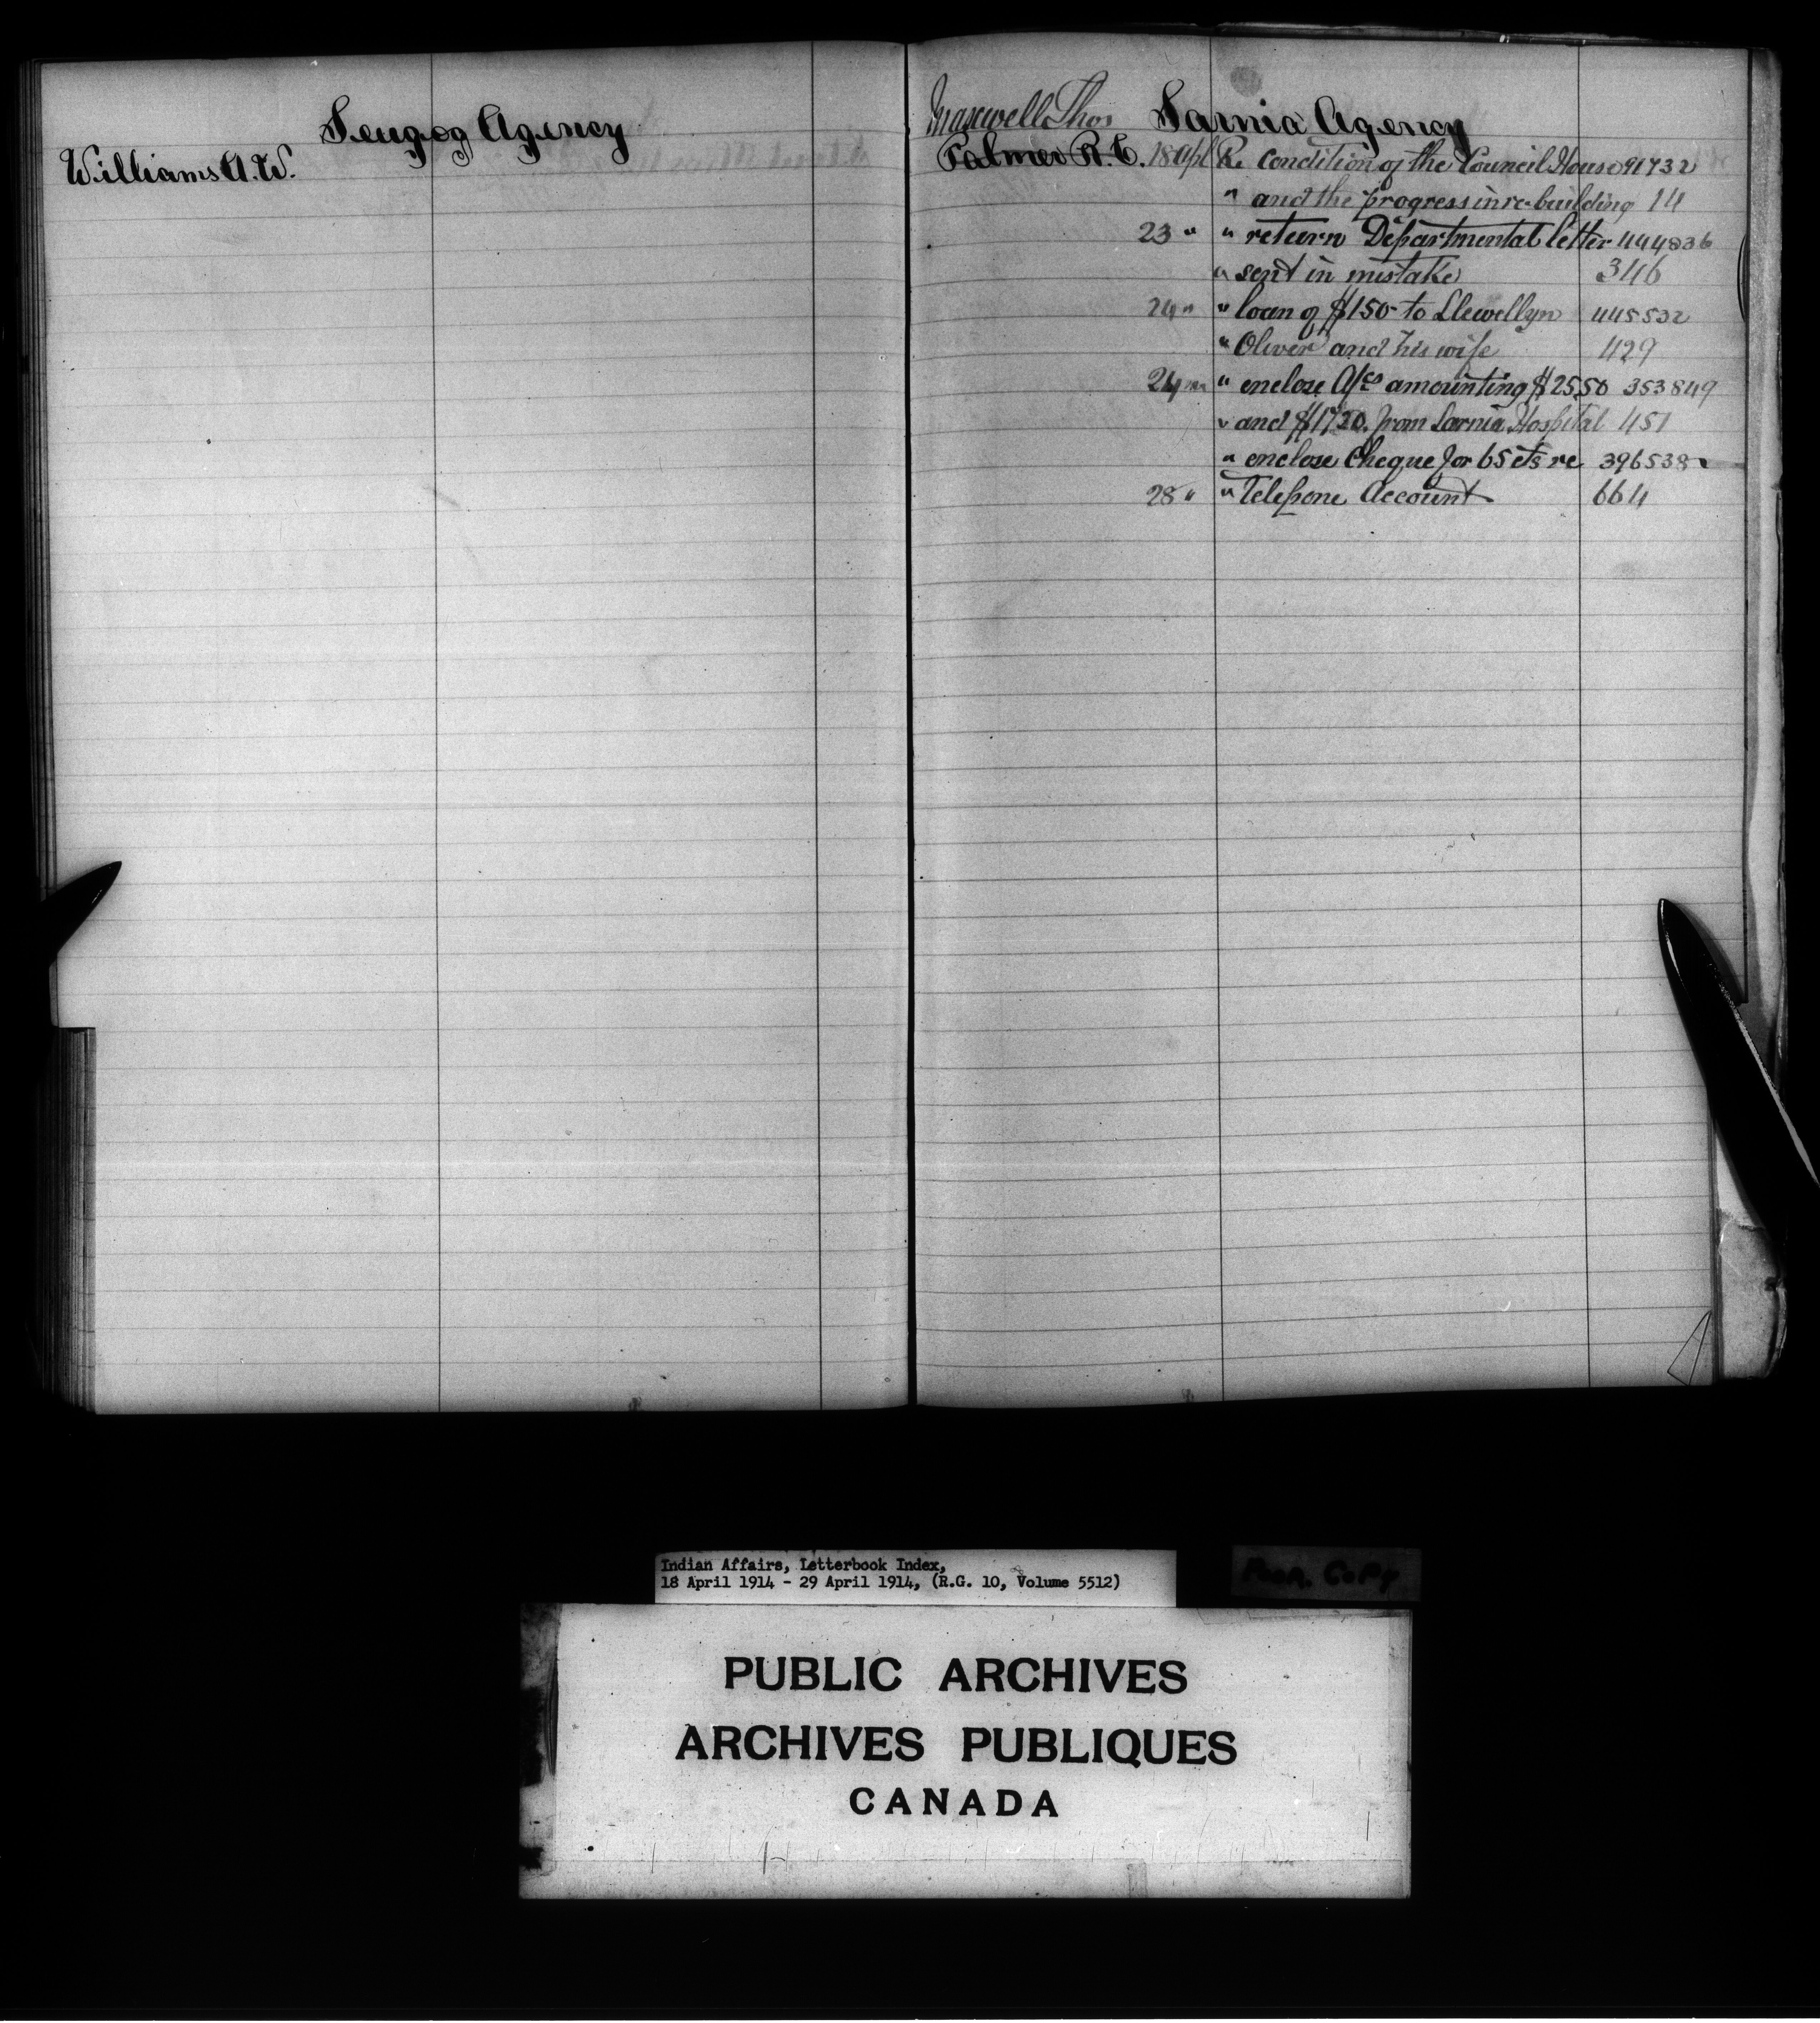 Scugog Agency
Williams A.W.
Maxwell Thos Sarnia Agency
Palmer R.C. 18 Apl Re Condition of the Council House 91732
" and the progress in re-building 14
23 " " return Departmental letter 444836
" sent in mistake 346
24 " " loan of $150 to Llewellyn 445532
" Oliver and his wife 429
24 " " enclose A/cs amounting $25.50 353849
" and $17.20. from Sarnia Hospital 451
" enclose Cheque for 65 cts re 396538
28 " " Telepone Account 664
Indian Affairs, Letterbook Index,
18 April 1914 - 29 April 1914, (R.G. 10, Volume 5512)
Poor Copy
PUBLIC ARCHIVES
ARCHIVES PUBLIQUES
CANADA